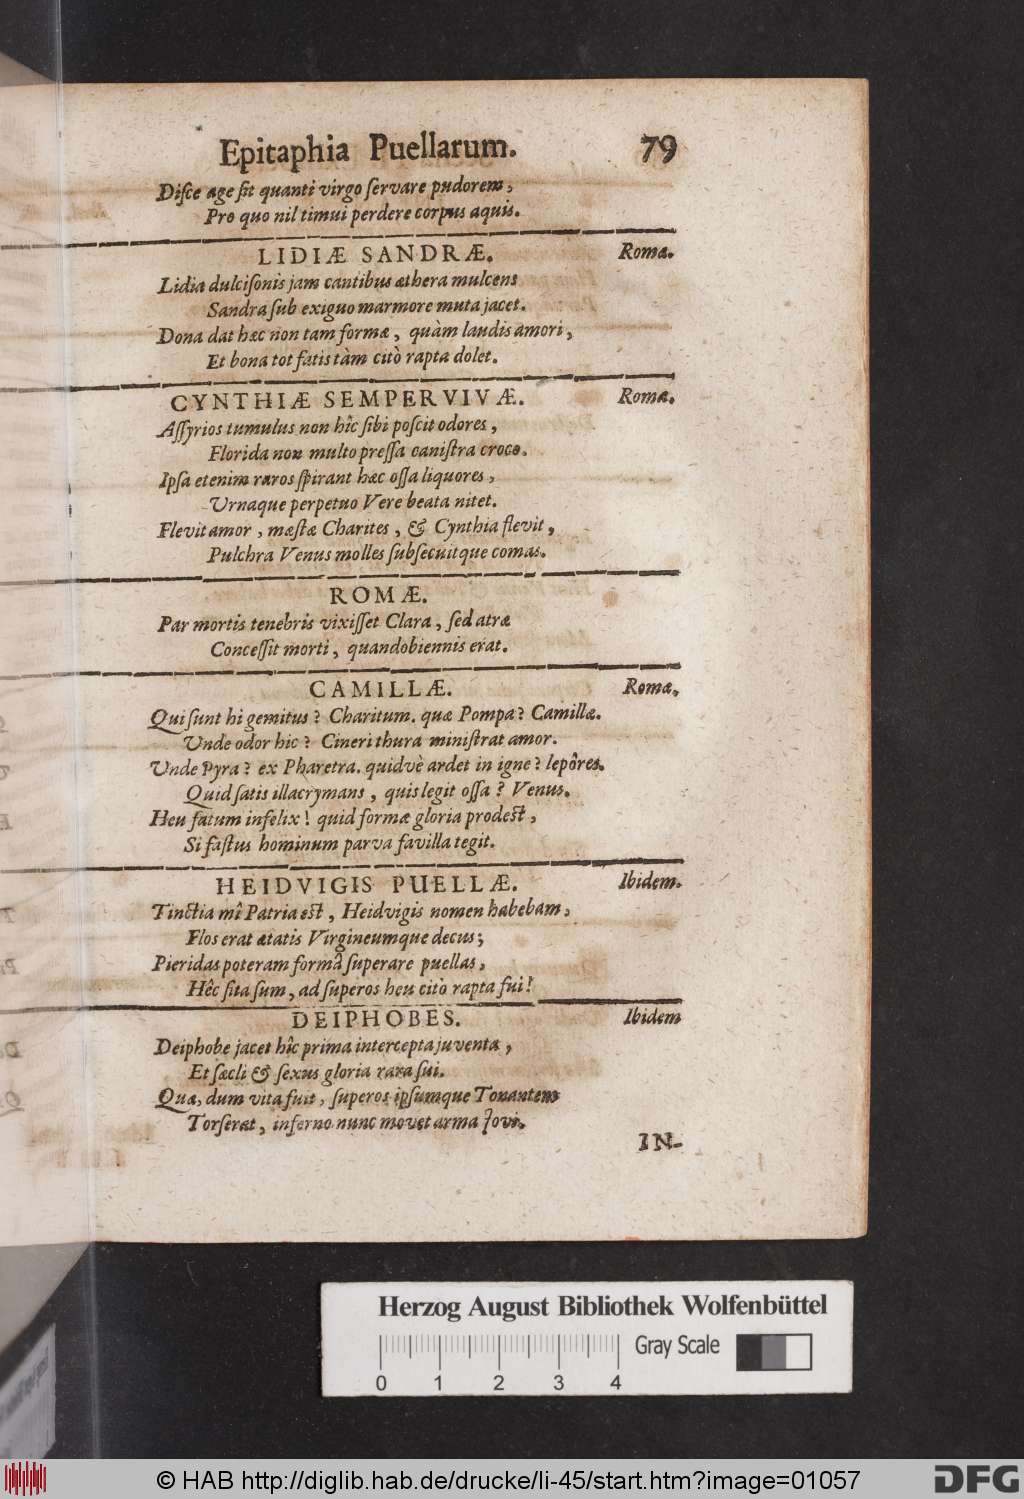 Epitaphia Puellarum. 79
Disce age sit quanti virgo servare pudorem,
Pro quo nil timui perdere corpus aquis.
LIDIÆ SANDRÆ. Romæ.
Lidia dulcisonis jam cantibus æthera mulcens
Sandra sub exiguo marmore muta jacet.
Dona dat hæc non tam formæ, quàm laudis amori,
Et bona tot fatis tàm citò rapta dolet.
CYNTHIÆ SEMPERVIVÆ. Romæ.
Assyrios tumulus non hîc sibi poscit odores,
Florida non multo pressa canistra croco.
Ipsa etenim raros spirant hæc ossa liquores,
Urnaque perpetuo Vere beata nitet.
Flevit amor, mæstæ Charites, & Cynthia flevit,
Pulchra Venus molles subsecuitque comas.
ROMÆ.
Par mortis tenebris vixisset Clara, sed atræ
Concessit morti, quando biennis erat.
CAMILLÆ. Romæ,
Qui sunt hi gemitus? Charitum. quæ Pompa? Camillæ.
Unde odor hic? Cineri thura ministrat amor.
Unde Pyra? ex Pharetra. quidvè ardet in igne? lepôres.
Quid satis illacrymans, quis legit ossa? Venus.
Heu fatum infelix! quid formæ gloria prodest,
Si fastus hominum parva favilla tegit.
HEIDVIGIS PUELLÆ. Ibidem.
Tinctia mî Patria est, Heidvigis nomen habebam,
Flos erat ætatis Virgineumque decus;
Pieridas poteram formâ superare puellas,
Hêc sita sum, ad superos heu citò rapta fui!
DEIPHOBES. Ibidem
Deiphobe jacet hîc prima intercepta juventa,
Et sæcli & sexus gloria rara sui.
Quæ, dum vita fuit, superos ipsumque Tonantem
Torserat, inferno nunc movet arma Jovi.
IN-
Herzog August Bibliothek Wolfenbüttel
Gray Scale
0 1 2 3 4
© HAB http://diglib.hab.de/drucke/li-45/start.htm?image=01057
DFG